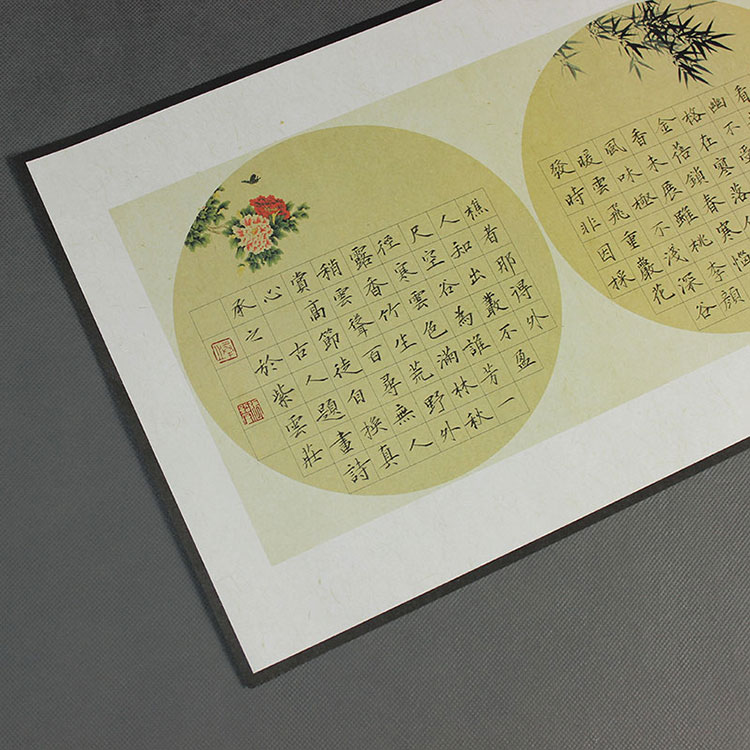 看
幽不
格在寒落
金蓓鎖春寒惱
香未展雖桃李顏
風味極不淺深谷
暖雲飛重嚴花
發時非因採
樵者耶得外
人知出叢不盈
尺空谷為誰芳一
徑寒雲色滿林秋
露香竹生荒野外
稍雲聳百尋無人
賞高節徒自換真
心 古人題畫詩
承之於紫雲莊